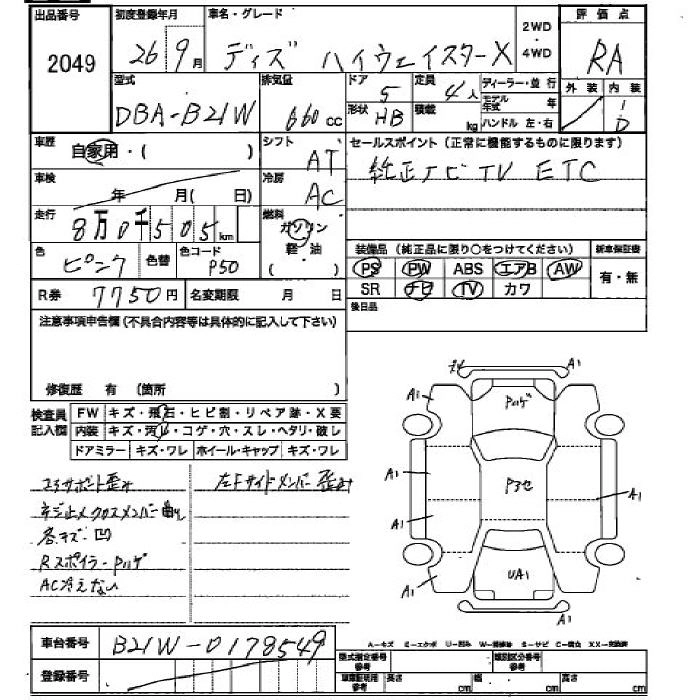 出品番号 初度登録年月 車名・グレード 2WD・4WD 評価点
2049 26 9月 ディズ ハイウェイスターX RA
型式 排気量 ドア 定員 ディーラー・並行 外装 内装
DBA-B21W 660cc 5 4人 モデル年式 年 D
形状 HB 積載 kg ハンドル 左・右
車歴 自家用・( ) シフト AT セールスポイント(正常に機能するものに限ります)
車検 年 月( 日) 冷房 AC 純正ナビTV ETC
走行 8万0千505km 燃料 ガソリン 軽・油 ( )
色 ピンク 色替 色コード P50 装備品(純正品に限り○をつけてください) 新車保証書
PS PW ABS エアB AW 有・無
R券 7750円 名変期限 月 日 SR ナビ TV カワ
注意事項申告欄(不具合内容等は具体的に記入して下さい) 後日品
修復歴 有 (箇所 )
検査員記入欄 FW キズ・飛石・ヒビ割・リペア跡・X要
内装 キズ・汚レ・コゲ・穴・スレ・ヘタリ・破レ
ドアミラー キズ・ワレ ホイール・キャップ キズ・ワレ
コアサポート歪み 左Fサイドメンバー歪み
ネジ止メクロスメンバー曲り
各キズ・凹
Rスポイラーハゲ
AC冷えない
A1
A1 A1
Pハゲ
A1 A1
Pヨセ
A1
A1 UA1 A1
A1
車台番号 B21W-0178549
登録番号
A…キズ E…エクボ U…凹み W…補修跡 S…サビ C…腐食 XX…交換済
型式指定番号参考 類別区分番号参考
車庫証明用参考 長さ cm 幅 cm 高さ cm